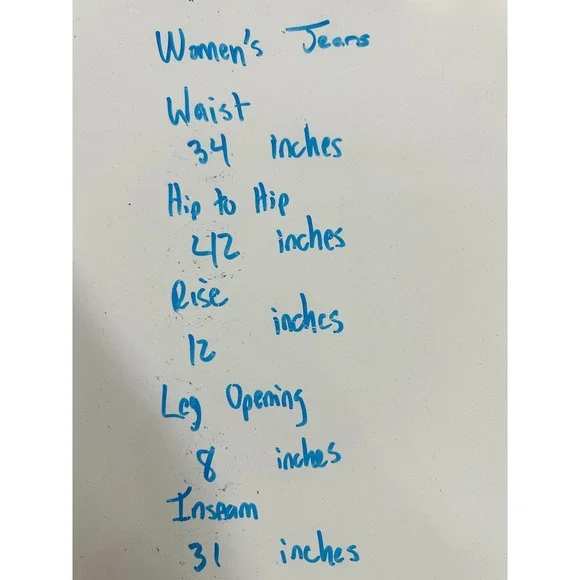 Women's Jeans
Waist
34 inches
Hip to Hip
42 inches
Rise
12 inches
Leg Opening
8 inches
Inseam
31 inches